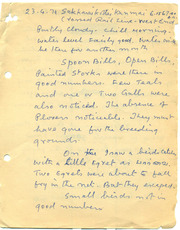 Partly cloudy. Chill morning.
Water level fairly good. Water may
be there for another month
Spoon Bills, Open Bills,
Painted Storks were there in
good numbers. Few Teals
and one or two Gulls were
also noticed. The absence of
Plovers noticeable. They must
have gone for the breeding
grounds.
On the I saw a birds
with a little Egret as
Two Egrets were about to fall
in the net. But they escaped.
Small birds not in
good numbers.